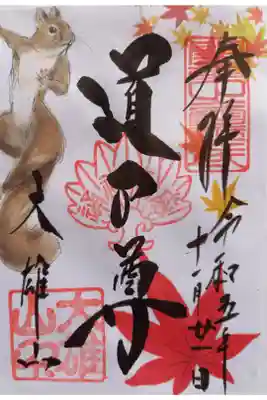 奉拝
令和五年
十一月廿一日
道了尊
大雄山
大雄
山印